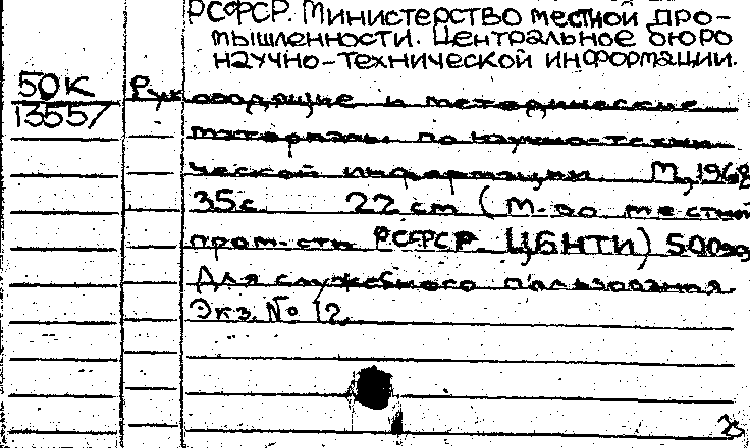 РСФСР. Министерство местной про-
мышленности. Центральное бюро
научно-технической информации.
50К
13551
Руководящие и методические
материалы по научно-техни-
ческой информации. М, 1968
35с. 22 см (М-во местной
пром-сти РСФСР. ЦБНТИ) 500экз
Для служебного пользования
Экз. № 12.